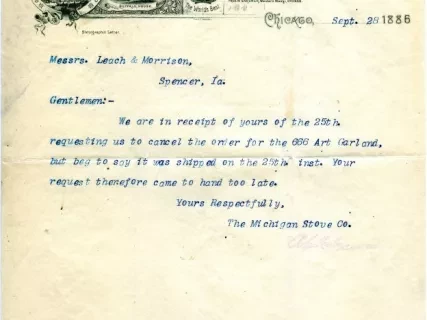 CHICAGO, Sept. 28 1886
Messrs. Leach & Morrison,
Spencer, Ia.
Gentlemen:-
We are in receipt of yours of the 25th
requesting us to cancel the order for the 666 Art Garland,
but beg to say it was shipped on the 25th inst. Your
request therefore came to hand too late.
Yours Respectfully,
The Michigan Stove Co.